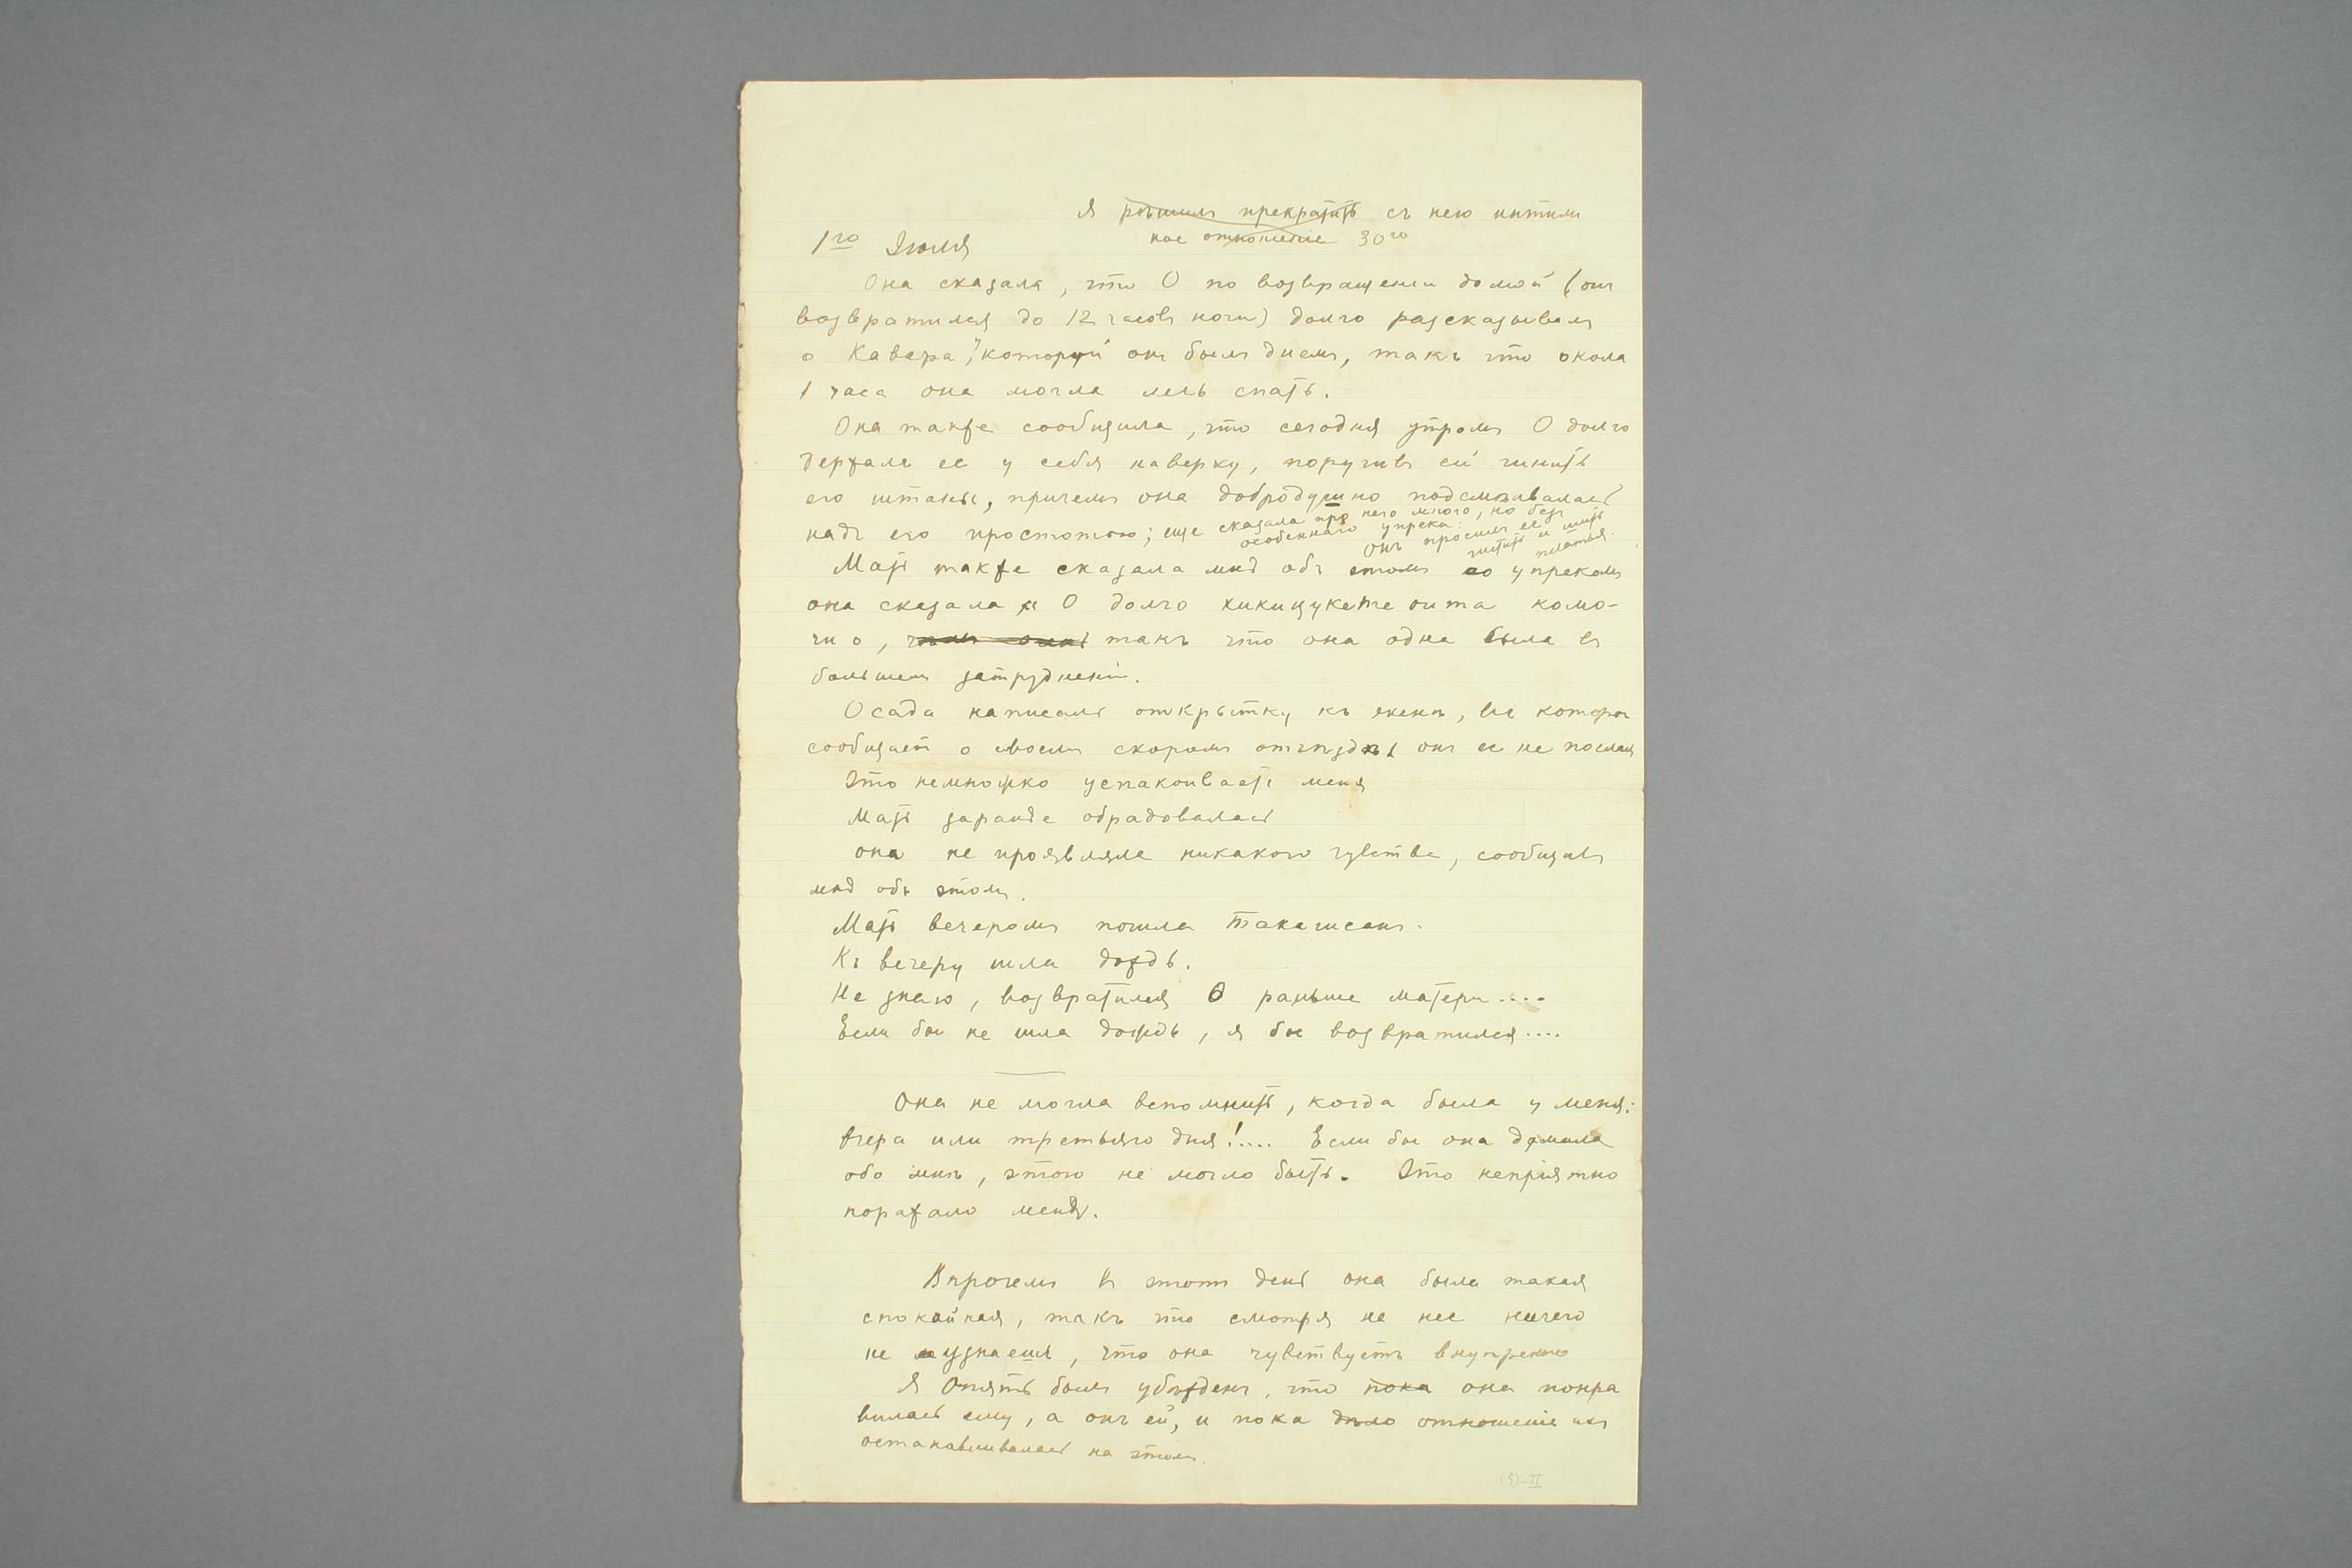 Я рѣшилъ прекратить съ нею интим
ное отношеніе 30го
1го Іюля
Она сказала, что О по возвращеніи домой (онъ
возвратился до 12 часовъ ночи) долго разсказывалъ
о Кавера, которй онъ былъ днемъ, такъ что окола
1 часа она могла лечь спать.
Она также сообщила, что сегодня утромъ О долго
держалъ ее у себя наверху, поручивъ ей чинить
его штаны, причемъ она добродушно подсмѣивалась
надъ его простотою; еще сказала про него много, но безъ
особеннаго упрека.
онъ просилъ ее шить
чистить и платья.
Мать также сказала мнѣ объ этомъ со упрекомъ
она сказала О долго хикицукете оита комо-
чи о, такъ что она одна была въ
большемъ затрудненіи.
Осада написалъ открытку къ женѣ, въ которо
сообщаетъ о своемъ скоромъ отъѣздѣ, онъ ее не послалъ
Это немножко успакоиваетъ меня
Мать заранѣе обрадовалась
она не проявляла никакого чувства, сообщавъ
мнѣ объ этомъ.
Мать вечеромъ пошла Такагисанъ.
Къ вечеру шла дождь.
Не знаю, возвратился О раньше матери....
Если бы не шла дождь, я бы возвратился....
Она не могла вспомнить, когда была у меня:
вчера или третьяго дня!.... Если бы она думала
обо мнѣ, этого не могло быть. Это непріятно
поражало меня.
Впрочемъ въ этотъ день она была такая
спокайная, такъ что смотря на нее ничего
не узнаешь, что она чувствуетъ внутренно
Я Опять былъ убѣжденъ, что пока она понра
вилась ему, а онъ ей, и пока дѣло отношеніе ихъ
останавливалась на этомъ.
(5)-II